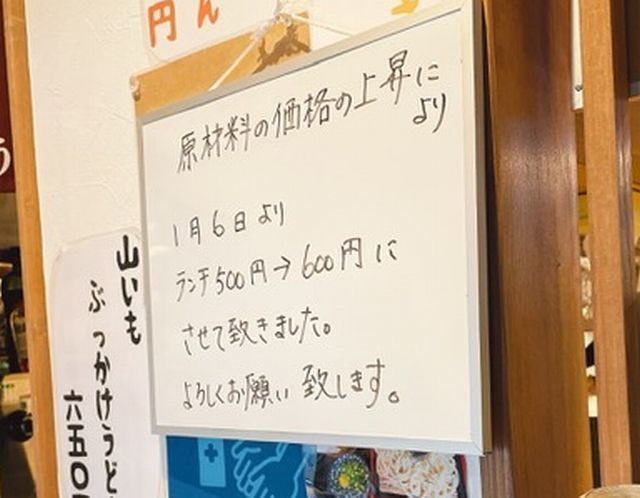 円
ん
原材料の価格の上昇に
より
1月6日より
ランチ500円→600円に
させて致きました。
よろしくお願い致します。
山いも
ぶっかけうど
六五〇
う